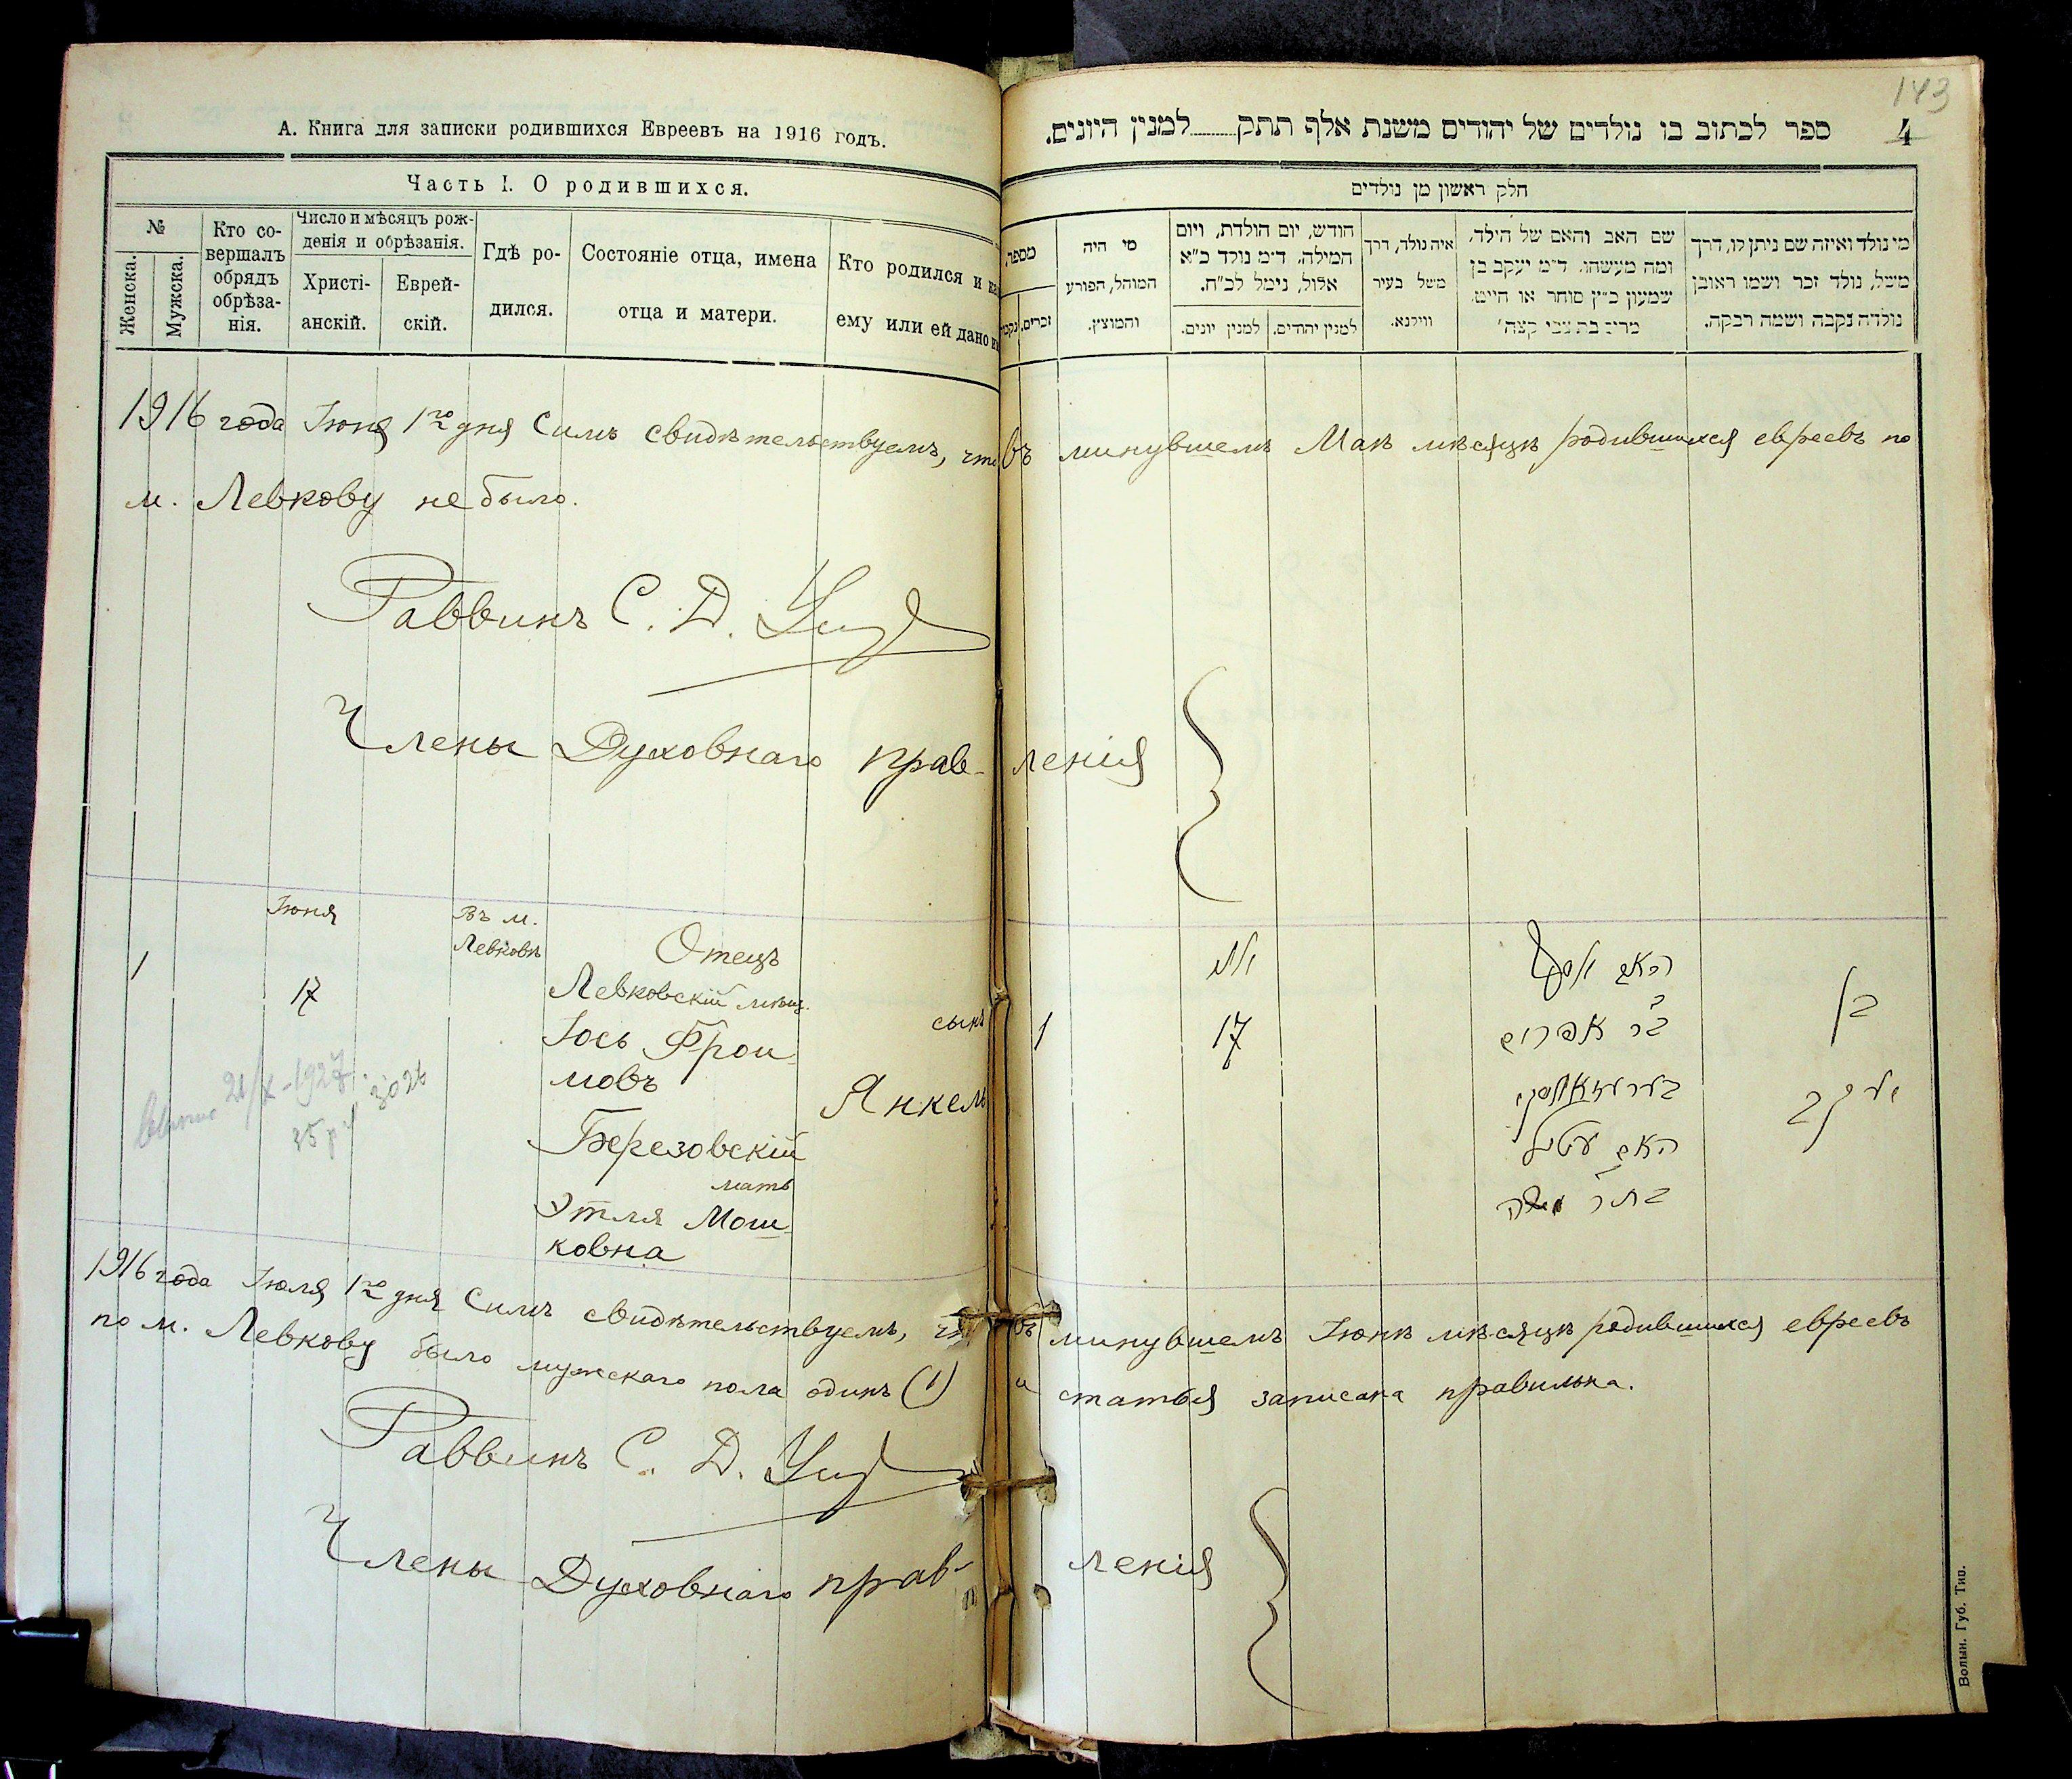 А. Книга для записки родившихся Евреевъ на 1916 годъ.
Часть I. О родившихся.
№
Женска.
Мужска.
Кто со-
вершалъ
обрядъ
обрѣза-
нія.
Число и мѣсяцъ рож-
денія и обрѣзанія.
Христі-
анскій.
Еврей-
скій.
Гдѣ ро-
дился.
Состояніе отца, имена
отца и матери.
Кто родился и
ему или ей дано
143
4
ספר לכתוב בו נולדים של יהודים משנת אלף תתק למנין היונים.
חלק ראשון מן נולדים
מי נולד ואיזה שם ניתן לו, דרך
משל, נולד זכר ושמו ראובן
נולדה נקבה ושמה רבקה.
שם האב והאם של הילד,
ומה מעשהו. ד״מ יעקב בן
שמעון כ״ץ סוחר או חייט.
איה נולד, דרך
משל בעיר
ווילנא.
חודש, יום הולדת, ויום
המילה. ד״מ נולד כ״א
אלול, נימל לכ״ח.
למנין יהודים.
למנין יונים.
מי היה
המוהל, הפורע
והמוצץ.
מספר
זכרים,
1916 года Іюня 1го дня Симъ свидѣтельствуемъ, что въ минувшемъ Маѣ мѣсяцѣ родившихся евреевъ по
м. Левкову не было.
Раввинъ С. Д.
Члены Духовнаго прав-ленія
Іюня
Въ м.
Левковѣ
1
17
Отецъ
Левковскій мѣщ.
Іось Фрои-
мовъ
Березовскій
мать
Этля Мош-
ковна
сынъ
Янкель
21/X-1927 г.
1
17
האב יוסף
ב״ר אפרים
האם עטיל
בת ר׳ משה
בן
יעקב
1916 года Іюля 1го дня Симъ свидѣтельствуемъ, что въ минувшемъ Іюнѣ мѣсяцѣ родившихся евреевъ
по м. Левкову было мужскаго пола одинъ (1) и статья записана правильна.
Раввинъ С. Д.
Члены Духовнаго прав-ленія
Волын. Губ. Тип.